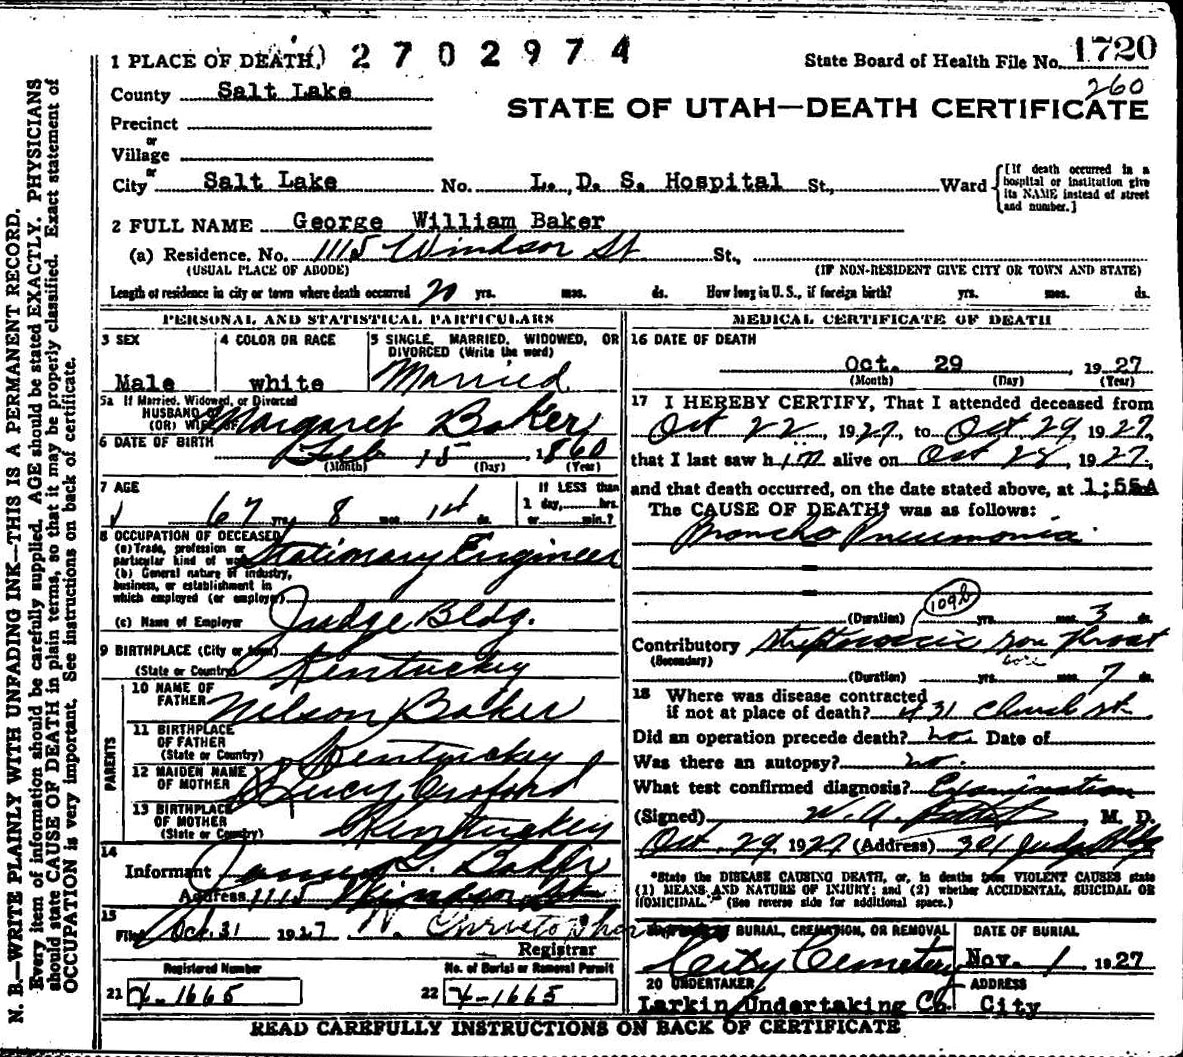 1 PLACE OF DEATH 2702974
State Board of Health File No. 1720
260
County Salt Lake
STATE OF UTAH—DEATH CERTIFICATE
Precinct
or
Village
or
City Salt Lake No. L. D. S. Hospital St., Ward
[If death occurred in a hospital or institution give its NAME instead of street and number.]
2 FULL NAME George William Baker
(a) Residence. No. 1115 Windsor St St.,
(USUAL PLACE OF ABODE) (IF NON-RESIDENT GIVE CITY OR TOWN AND STATE)
Length of residence in city or town where death occurred 20 yrs. mos. ds. How long in U. S., if foreign birth? yrs. mos. ds.
PERSONAL AND STATISTICAL PARTICULARS
3 SEX
Male
4 COLOR OR RACE
white
5 SINGLE, MARRIED, WIDOWED, OR
DIVORCED (Write the word)
Married
5a If Married, Widowed, or Divorced
HUSBAND OF
(OR) WIFE OF Margaret Baker
6 DATE OF BIRTH Feb 15 1860
(Month) (Day) (Year)
7 AGE
67 yrs. 8 mos. 14 ds.
If LESS than
1 day, hrs.
or min.?
8 OCCUPATION OF DECEASED
(a) Trade, profession or
particular kind of work Stationary Engineer
(b) General nature of industry,
business, or establishment in
which employed (or employer)
(c) Name of Employer Judge Bldg.
9 BIRTHPLACE (City or town)
(State or Country) Kentuckey
PARENTS
10 NAME OF
FATHER Nelson Baker
11 BIRTHPLACE
OF FATHER
(State or Country) Kentuckey
12 MAIDEN NAME
OF MOTHER Lucy
13 BIRTHPLACE
OF MOTHER
(State or Country) Kentuckey
14
Informant Baker
Address 1115 Windsor St
15
Filed Oct. 31 1927
Registrar
Registered Number
21 X-1665
No. of Burial or Removal Permit
22 X-1665
MEDICAL CERTIFICATE OF DEATH
16 DATE OF DEATH
Oct. 29 1927
(Month) (Day) (Year)
17 I HEREBY CERTIFY, That I attended deceased from
Oct 22, 1927, to Oct 29, 1927,
that I last saw him alive on Oct 28, 1927,
and that death occurred, on the date stated above, at 1:55A
The CAUSE OF DEATH* was as follows:
Broncho Pneumonia
109b
(Duration) yrs. mos. 3 ds.
Contributory Streptococcic Sore Throat
(Secondary) sore
(Duration) yrs. mos. 7 ds.
18 Where was disease contracted
if not at place of death?
Did an operation precede death? no. Date of
Was there an autopsy? no.
What test confirmed diagnosis? Examination
(Signed) W. A. M. D.
Oct. 29 1927 (Address) 301 Judge Bldg
*State the DISEASE CAUSING DEATH, or, in deaths from VIOLENT CAUSES state
(1) MEANS AND NATURE OF INJURY; and (2) whether ACCIDENTAL, SUICIDAL OR
HOMICIDAL. (See reverse side for additional space.)
BURIAL, CREMATION, OR REMOVAL
City Cemetery
DATE OF BURIAL
Nov. 1, 1927
20 UNDERTAKER
Larkin Undertaking Co.
ADDRESS
City
READ CAREFULLY INSTRUCTIONS ON BACK OF CERTIFICATE
N. B.—WRITE PLAINLY WITH UNFADING INK—THIS IS A PERMANENT RECORD.
Every item of information should be carefully supplied. AGE should be stated EXACTLY. PHYSICIANS
should state CAUSE OF DEATH in plain terms, so that it may be properly classified. Exact statement of
OCCUPATION is very important. See instructions on back of certificate.